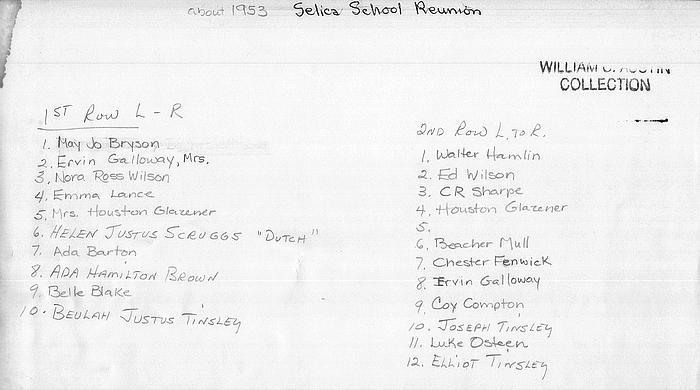 about 1953 Selica School Reunion
WILLIAM
COLLECTION
1ST Row L - R
1. May Jo Bryson
2. Ervin Galloway, Mrs.
3. Nora Ross Wilson
4. Emma Lance
5. Mrs. Houston Glazener
6. HELEN JUSTUS SCRUGGS "DUTCH"
7. Ada Barton
8. ADA HAMILTON BROWN
9. Belle Blake
10. BEULAH JUSTUS TINSLEY
2ND ROW L. TO R.
1. Walter Hamlin
2. Ed Wilson
3. CR Sharpe
4. Houston Glazener
5.
6. Beacher Mull
7. Chester Fenwick
8. Ervin Galloway
9. Coy Compton
10. JOSEPH TINSLEY
11. Luke Osteen
12. ELLIOT TINSLEY